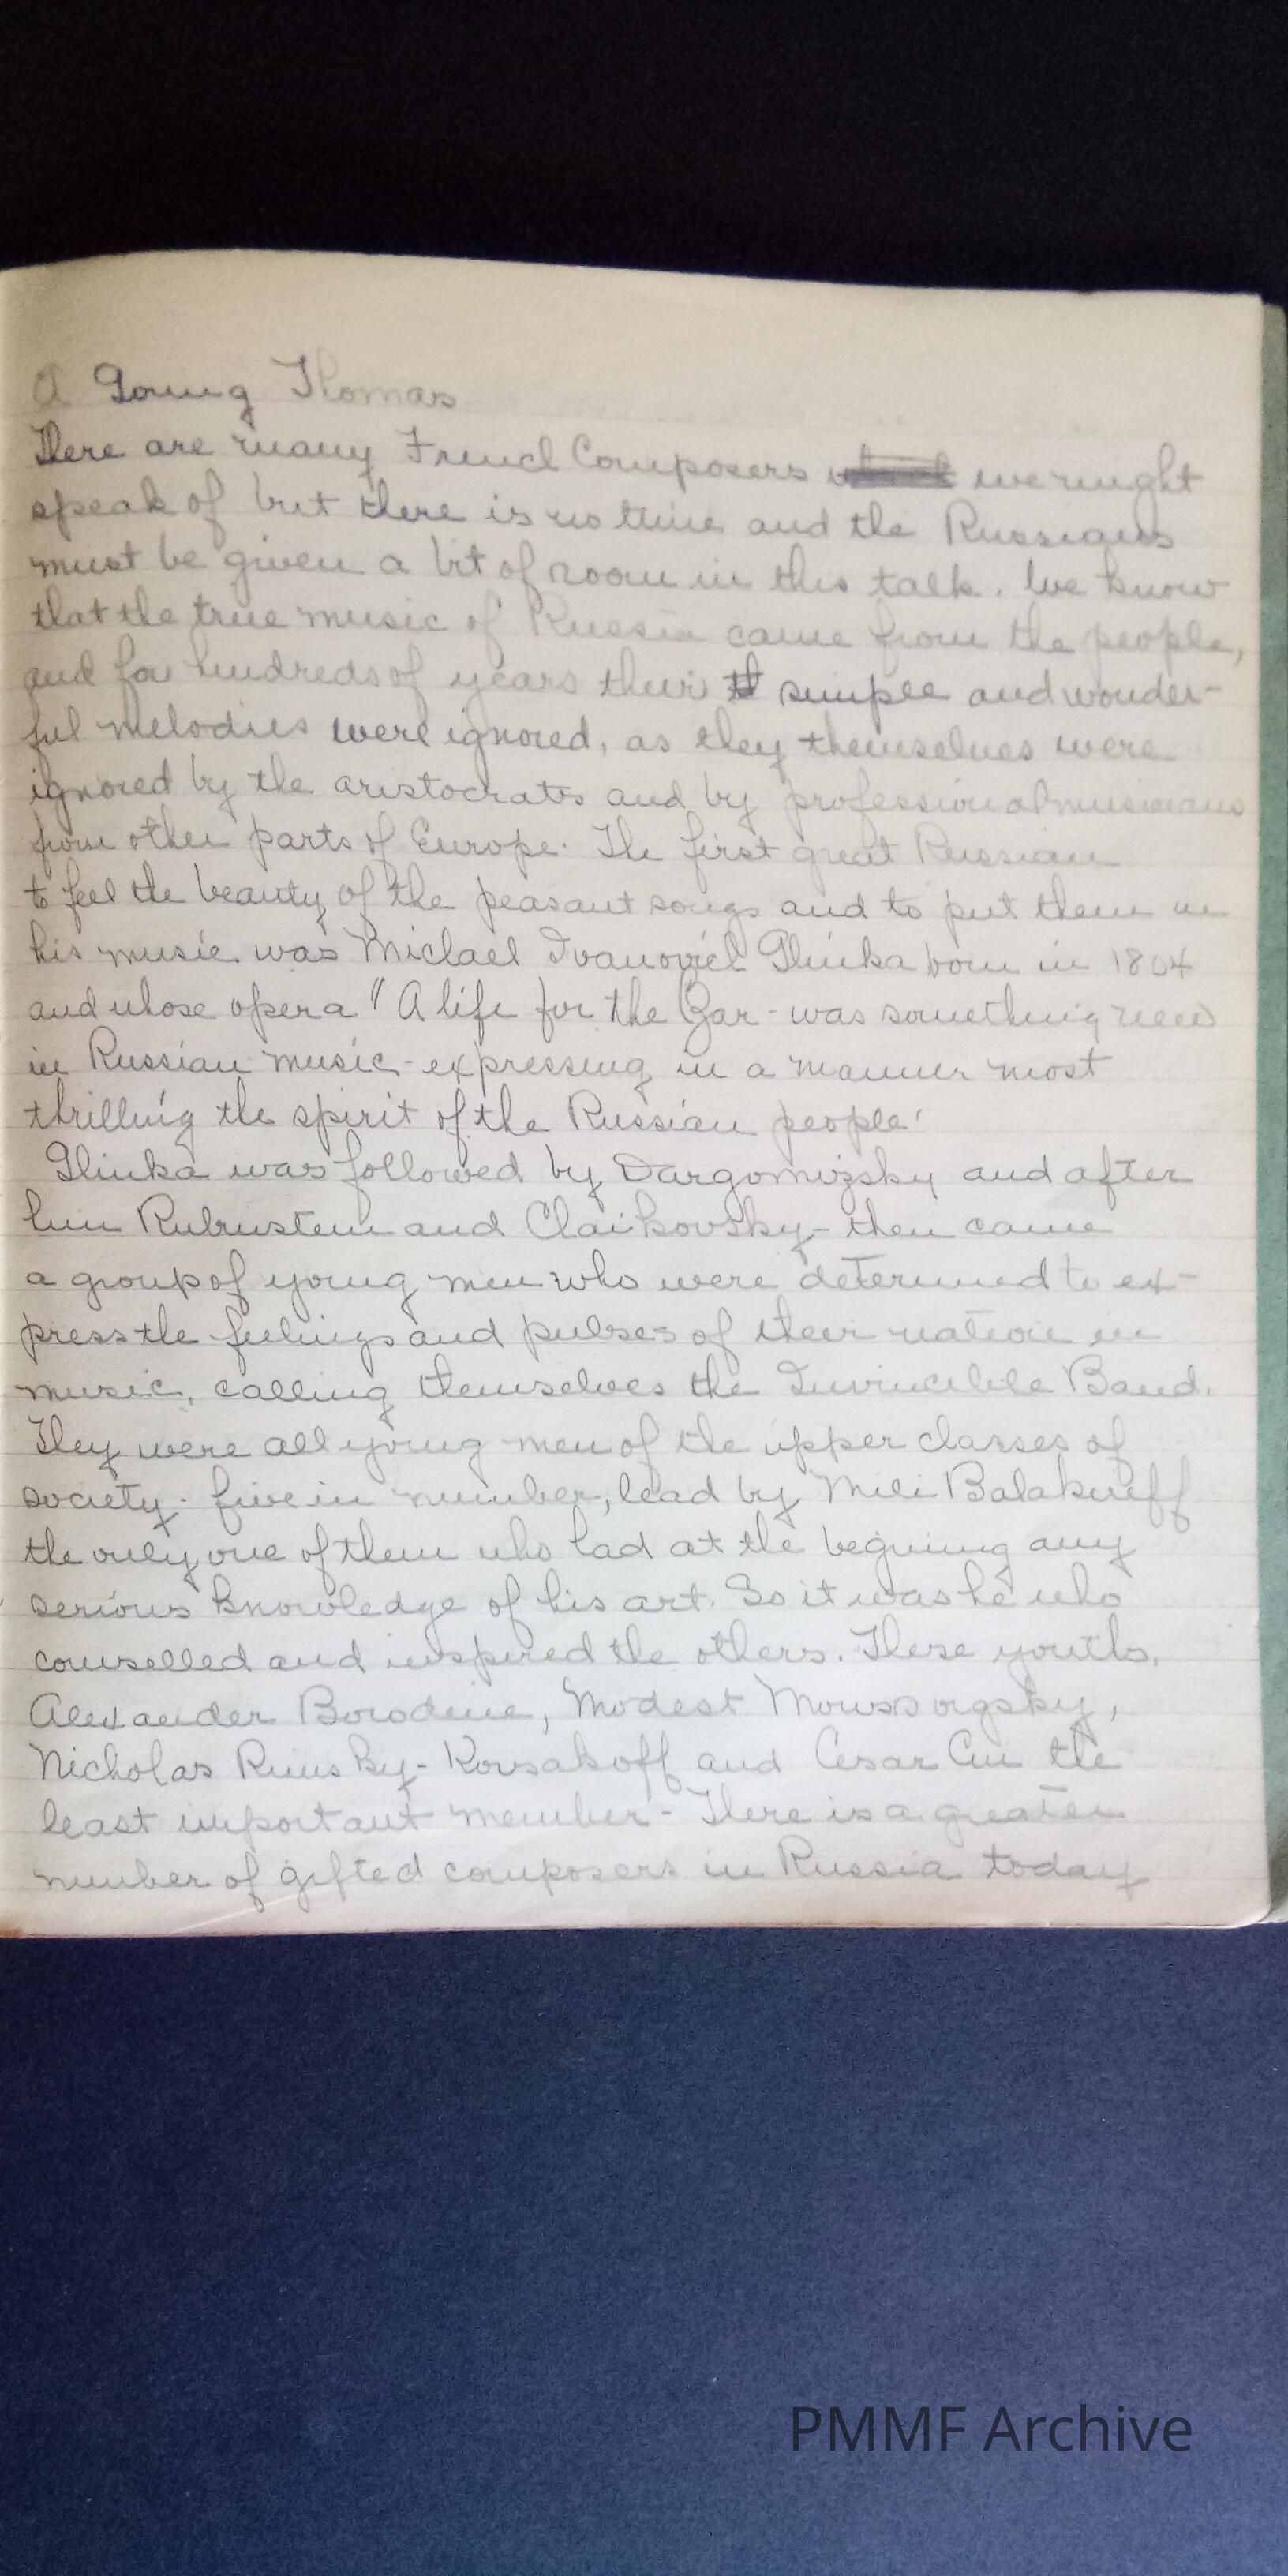 A Goring Thomas
There are many French Composers we might
speak of but there is no time and the Russians
must be given a bit of room in this talk. We know
that the true music of Russia came from the people,
and for hundreds of years their simple and wonder-
ful melodies were ignored, as they themselves were
ignored by the aristocrats and by professional musicians
from other parts of Europe. The first great Russian
to feel the beauty of the peasant songs and to put them in
his music was Michael Ivanovich Glinka born in 1804
and whose opera "A life for the Czar - was something new
in Russian music - expressing in a manner most
thrilling the spirit of the Russian people!
Glinka was followed by Dargomizsky and after
him Rubinstein and Chaikovsky - then came
a group of young men who were determined to ex-
press the feelings and pulses of their nation in
music, calling themselves the Invincible Band.
They were all young men of the upper classes of
society - five in number, lead by Mili Balakireff
the only one of them who had at the begining any
serious knowledge of his art. So it was he who
counselled and inspired the others. These youths,
Alexander Borodine, Modest Moussorgsky,
Nicholas Rimsky-Korsakoff and Cesar Cui the
least important member - There is a greater
number of gifted composers in Russia today
PMMF Archive